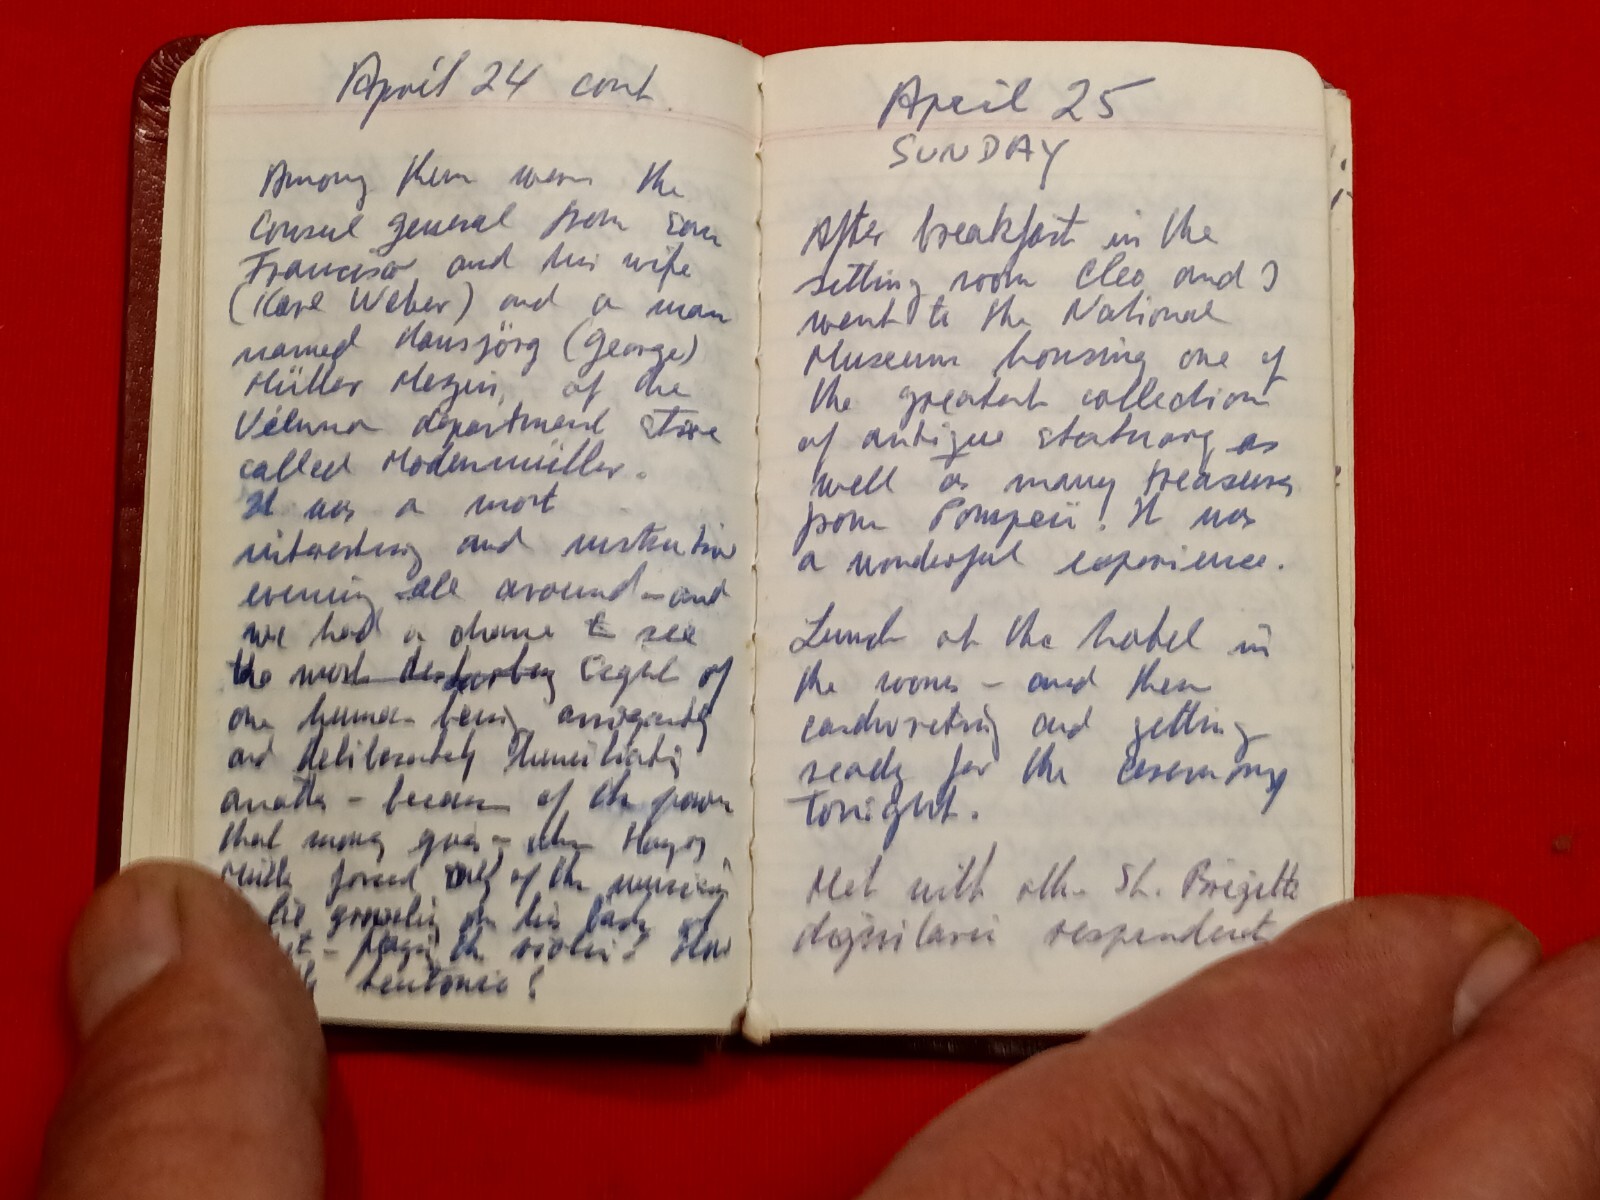 April 24 cont.
Among them were the
Consul general from San
Francisco and his wife
(Karl Weber) and a man
named Hansjörg (George)
Müller of the
Vienna department store
called Modenmüller.
It was a most
interesting and instructive
evening all around – and
we had a chance to see
the most disturbing sight of
one human being arrogantly
and deliberately humiliating
another – because of the power
that money gives – when
forced one of the musicians
lie on his back
the violin! How
teutonic!
April 25
SUNDAY
After breakfast in the
sitting room Cleo and I
went to the National
Museum housing one of
the greatest collection
of antique statuary as
well as many treasures
from Pompeii. It was
a wonderful experience.
Lunch at the hotel in
the room – and then
and getting
ready for the ceremony
tonight.
Met with other St. Brigitte